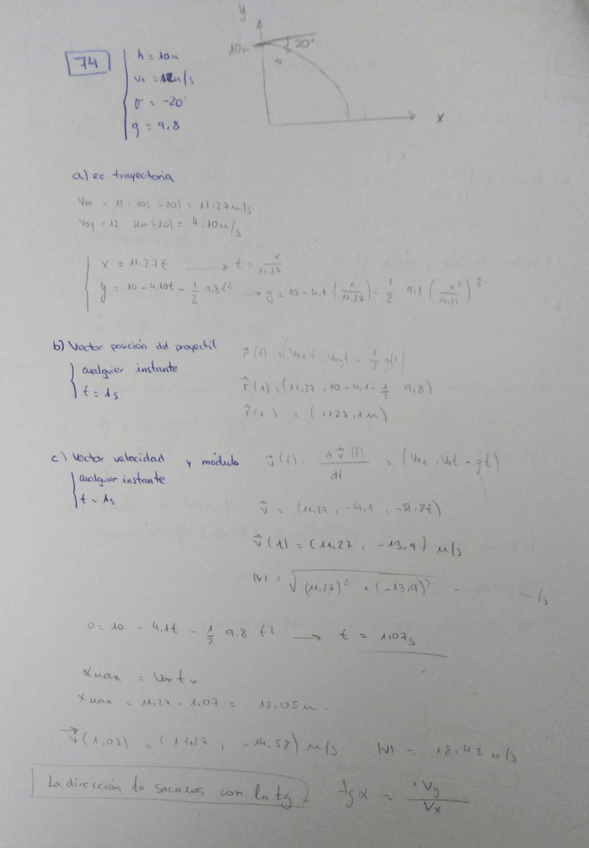 y
10m
20°
x
74
h = 10m
v₀ = 12m/s
σ = -20°
g = 9.8
a) ec. trayectoria
v₀x = 12 · cos(-20) = 11,27 m/s
v₀y = 12 · sen(-20) = 4.10 m/s
x = 11.27t → t = x/11,27
y = 10 - 4.10t - 1/2 9.8t² → y = 10 - 4.1 (x/11.27) - 1/2 9.8 (x²/11.27)²
b) Vector posición del proyectil
cualquier instante
t = 1s
r(t) = (v₀x t, v₀y t - 1/2 gt²)
r(1) = (11,27, 10 - 4.1 - 1/2 9,8)
r(1) = (11.27, 1m)
c) Vector velocidad y módulo
cualquier instante
t = 1s
v(t) = d v(t)/dt = (v₀x, v₀t - gt)
v = (11,27, -4,1, -9.8t)
v(1) = (11,27, -13,9) m/s
|v| = √(11,27)² + (-13,9)² = m/s
0 = 10 - 4.1t - 1/2 9.8 t² → t = 1,07s
xmax = v₀x tv
xmax = 11,27 - 1.07 = 12.05 m.
v(1,07) = (11,27, -14,58) m/s |v| = 18.42 m/s
La dirección la sacamos con la tg. tg α = Vy/Vx